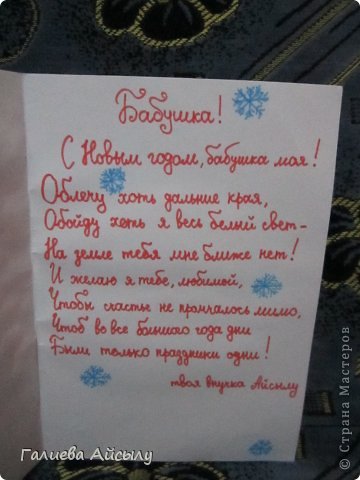 Бабушка!
С Новым годом, бабушка моя!
Облечу хоть дальние края,
Обойду хоть я весь белый свет -
На земле тебя мне ближе нет!
И желаю я тебе, любимой,
Чтобы счастье не промчалось мимо,
Чтоб во все большого года дни
Были только праздники одни!
твоя внучка Айсылу
Галиева Айсылу
© Страна Мастеров